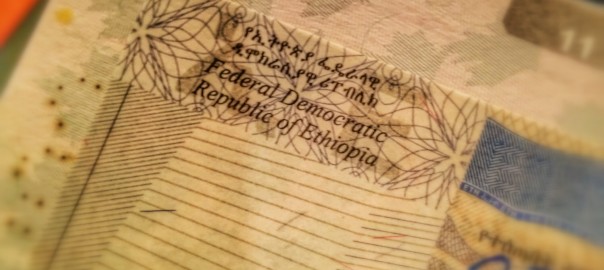 የኢትዮጵያ ፌዴራላዊ
ዲሞክራሲያዊ ሪፐብሊክ
Federal Democratic
Republic of Ethiopia
11